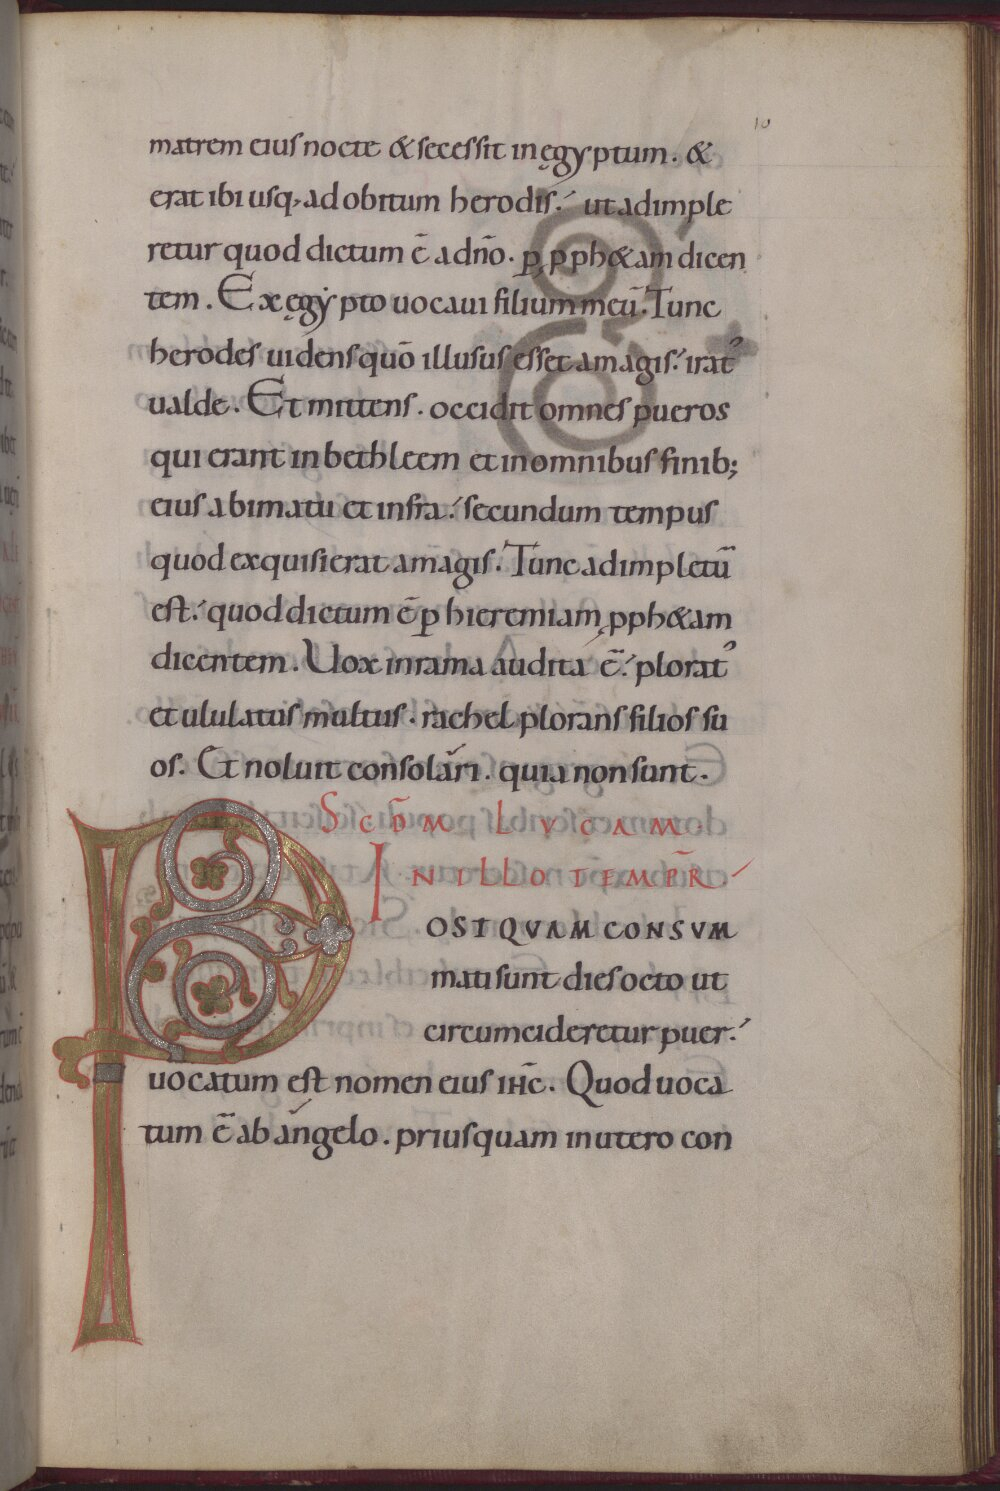 10
matrem eius nocte & secessit in ęgyptum. &
erat ibi usq, ad obitum herodis. ut adimple
retur quod dictum ē a dño. p̱ pph&am dicen
tem. Ex ęgypto uocaui filium meū. Tunc
herodes uidens quō illusus esset a magis. irat᾽
ualde. Et mittens. occidit omnes pueros
qui erant in bethleem et in omnibus finib;
eius a bimatu et infra. secundum tempus
quod exquisierat a magis. Tunc adimpletū
est. quod dictum ē p̱ hieremiam pph&am
dicentem. Uox in rama audita ē. plorat᾽
et ululatus multus. rachel plorans filios su
os. Et noluit consolári. quia non sunt.
SCDM̄ LVCAM.
IN ILLO TEMPR̄
POSTQVAM CONSVM
mati sunt dies octo ut
circumcideretur puer.
uocatum est nomen eius IHC̄. Quod uoca
tum ē ab ángelo. priusquam in utero con